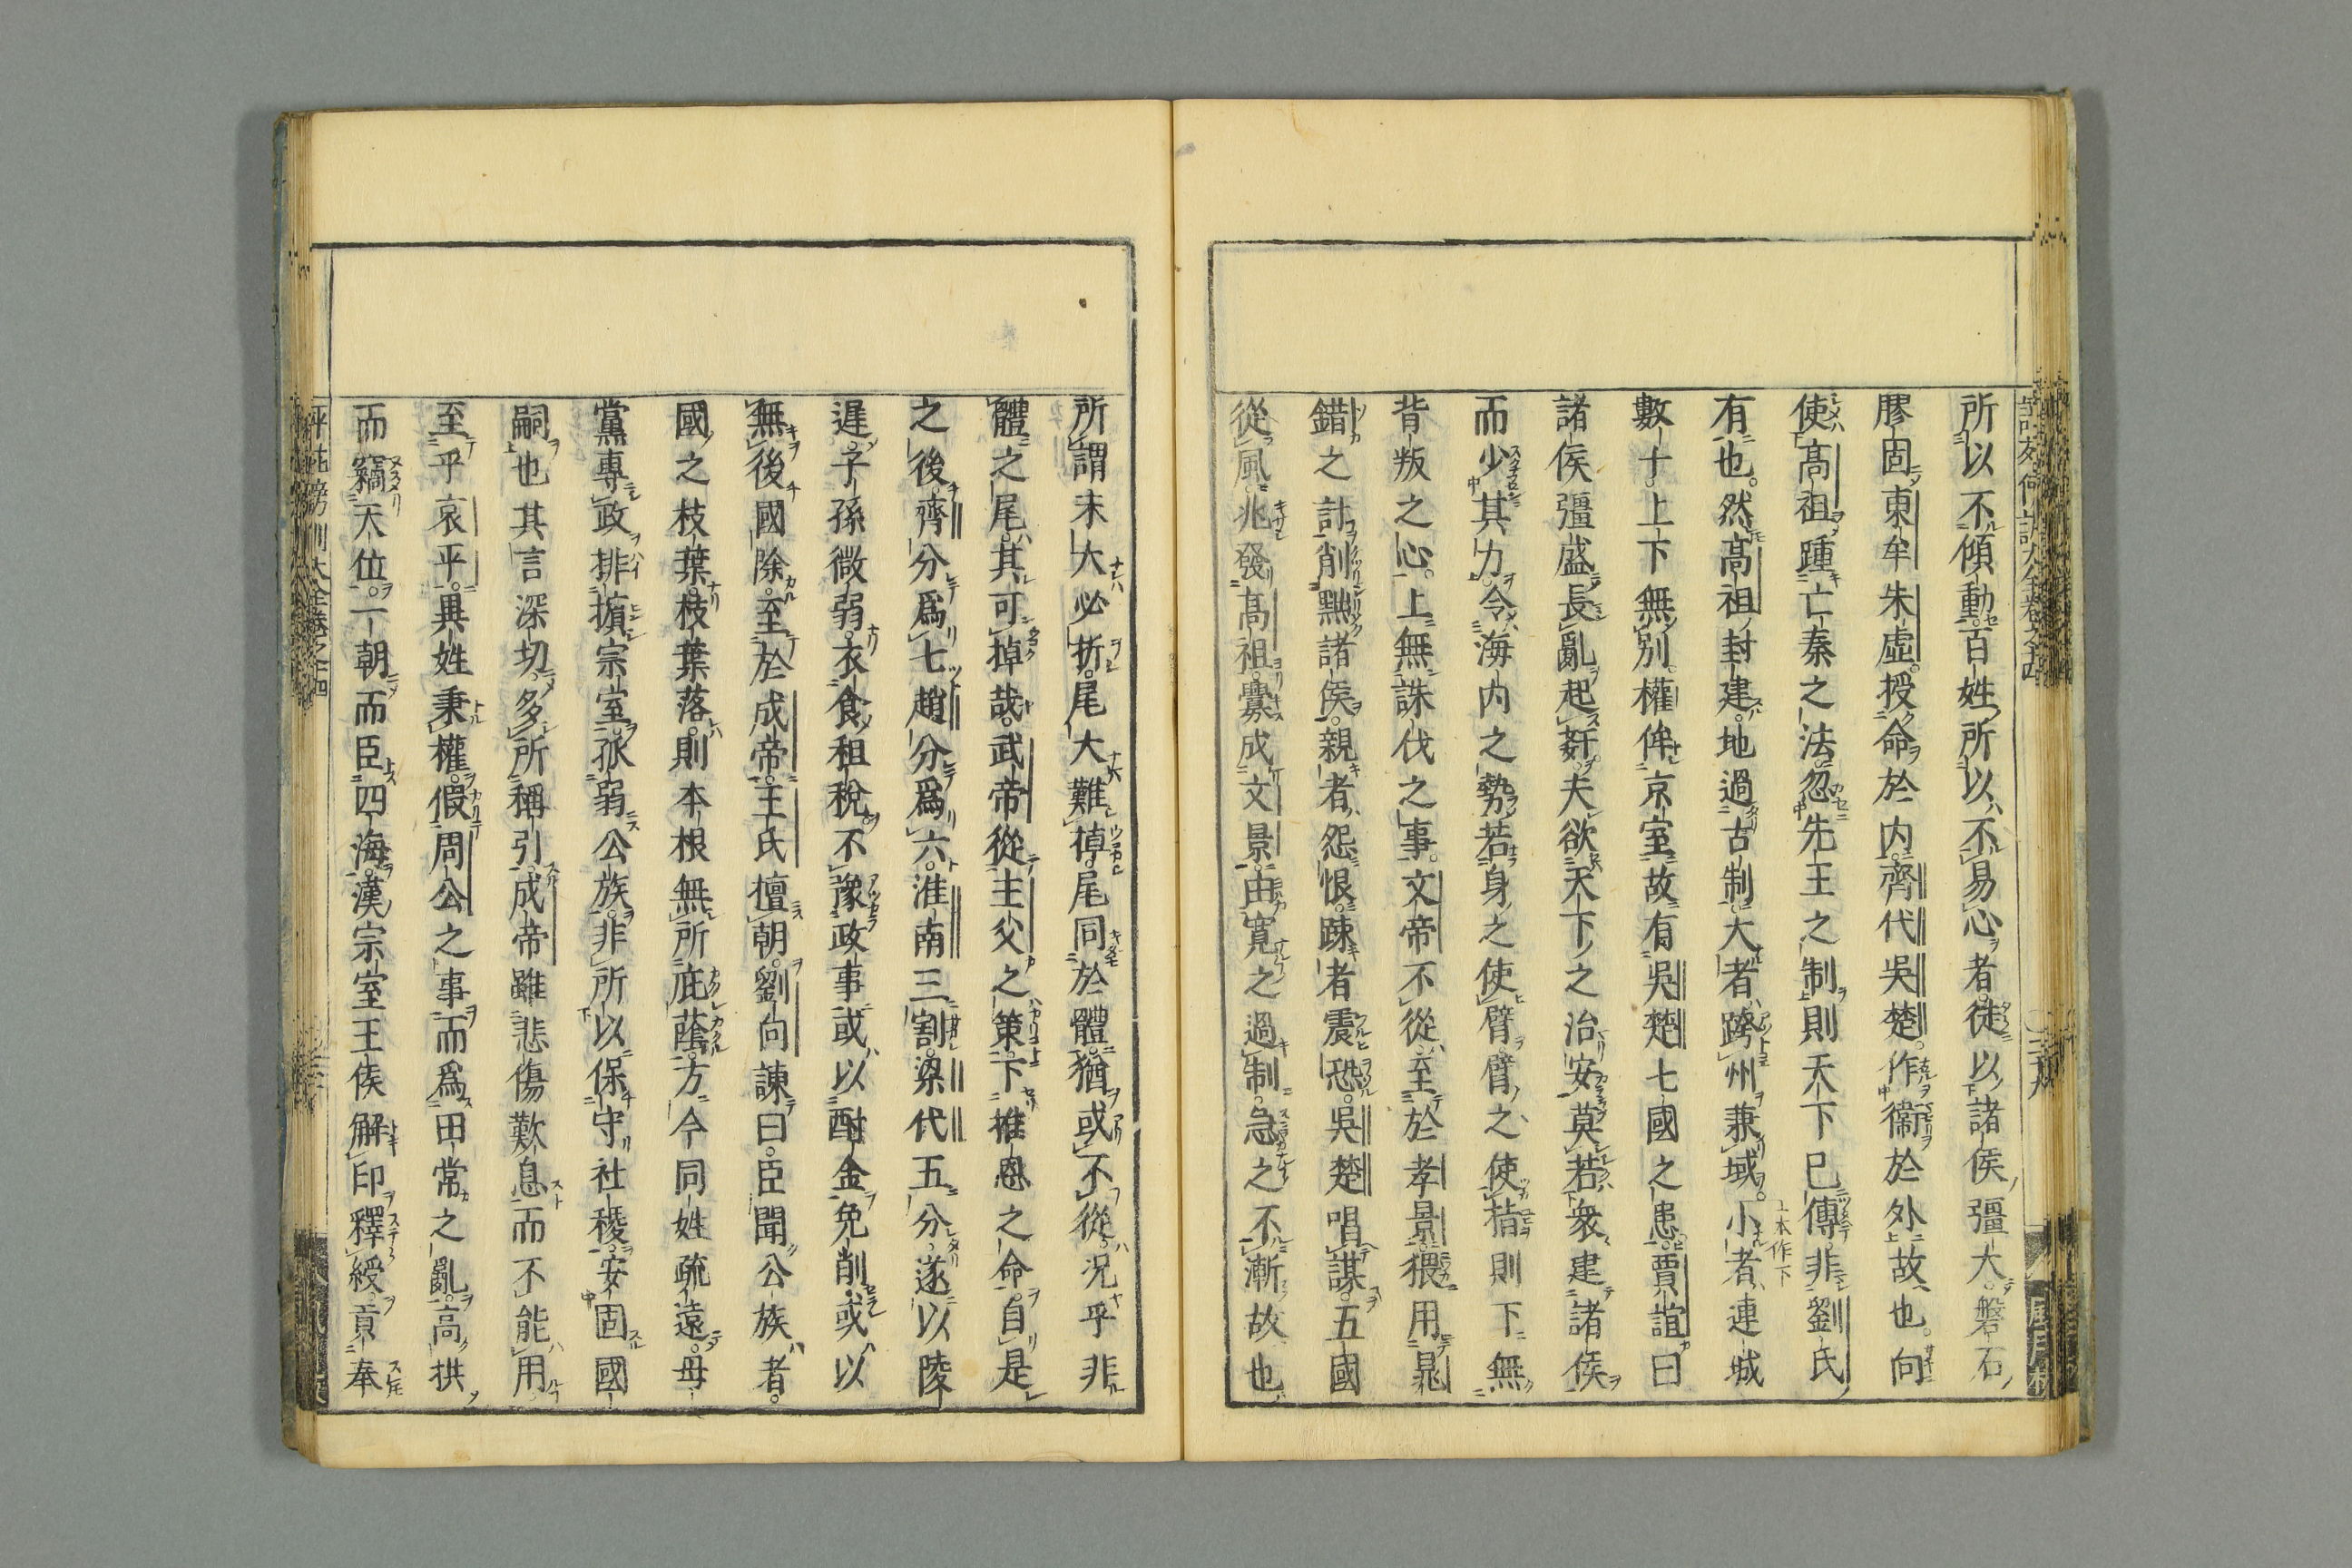 所以不傾動百姓所以不易心者徒以諸侯彊大磐石
膠固東牟朱虛授命於内齊代吳楚作衞於外故也向
使高祖踵亡秦之法忽先王之制則天下已傳非劉氏
有也然高祖封建地過古制大者跨州兼域小者連城
數十上下無別權侔京室故有吳楚七國之患賈誼曰
諸侯彊盛長亂起姧夫欲天下之治安莫若衆建諸侯
而少其力令海内之勢若身之使臂臂之使指則下無
背叛之心上無誅伐之事文帝不從至於孝景猥用鼂
錯之計削黜諸侯親者怨恨踈者震恐吳楚唱謀五國
從風兆發高祖釁成文景由寬之過制急之不漸故也
所謂末大必折尾大難掉尾同於體猶或不從況乎非
體之尾其可掉哉武帝從主父之策下推恩之命自是
之後齊分爲七趙分爲六淮南三割梁代五分遂以陵
遲子孫微弱衣食租稅不豫政事或以酎金免削或以
無後國除至於成帝王氏擅朝劉向諫曰臣聞公族者
國之枝葉枝葉落則本根無所庇蔭方今同姓疏遠母
黨專政排擯宗室孤弱公族非所以保守社稷安固國
嗣也其言深切多所稱引成帝雖悲傷歎息而不能用
至乎哀平異姓秉權假周公之事而爲田常之亂高拱
而竊天位一朝而臣四海漢宗室王侯解印釋綬貢奉